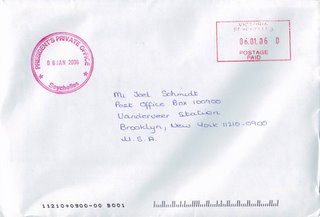 PRESIDENT'S PRIVATE OFFICE
06 JAN 2006
Seychelles
VICTORIA
SEYCHELLES
06.01.06 0
POSTAGE
PAID
Mr Joel Schmidt
Post Office Box 100900
Vanderveer Station
Brooklyn, New York 11210-0900
U.S.A.
11210+0900-00 B001